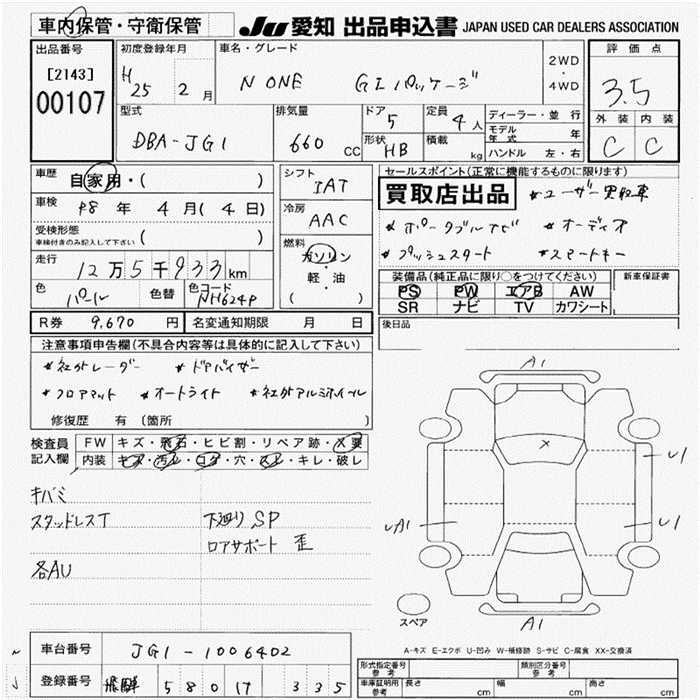 車内保管・守衛保管
JU 愛知 出品申込書 JAPAN USED CAR DEALERS ASSOCIATION
出品番号
[2143]
00107
初度登録年月
H25 2月
車名・グレード
N ONE GLパッケージ
2WD
・
4WD
評価点
3.5
外装 内装
C C
型式
DBA-JG1
排気量
660 CC
ドア
5
定員
4人
形状
HB
積載
kg
ディーラー・並行
モデル年式 年
ハンドル 左・右
車歴 自家用・( )
車検 R8年4月(4日)
受検形態
車検付きのみ記入して下さい ( )
走行
12万5千933km
色 パール 色替 色コード NH624P
シフト
IAT
冷房
AAC
燃料
ガソリン
軽・油
( )
セールスポイント(正常に機能するものに限ります)
買取店出品 *ユーザー買取車
*ポータブルナビ *オーディオ
*プッシュスタート *スマートキー
装備品(純正品に限り○をつけてください) 新車保証書
PS PW エアB AW
SR ナビ TV カワシート
R券 9,670円 名変通知期限 月 日
後日品
注意事項申告欄(不具合内容等は具体的に記入して下さい)
*社外レーダー *ドアバイザー
*フロアマット *オートライト *社外アルミホイール
修復歴 有(箇所 )
検査員記入欄
FW キズ・飛石・ヒビ割・リペア跡・X要
内装 キズ・汚レ・コゲ・穴・スレ・キレ・破レ
キバミ
スタッドレスT 下廻りSP
ロアサポート 歪
各AU
A1
X
U1
UA1
U1
スペア
A1
A-キズ E-エクボ U-凹み W-補修跡 S-サビ C-腐食 XX-交換済
車台番号 JG1-1006402
登録番号 飛騨 580 ワ 335
形式指定番号
参考
類別区分番号
参考
車庫証明用
参考
長さ cm 幅 cm 高さ cm